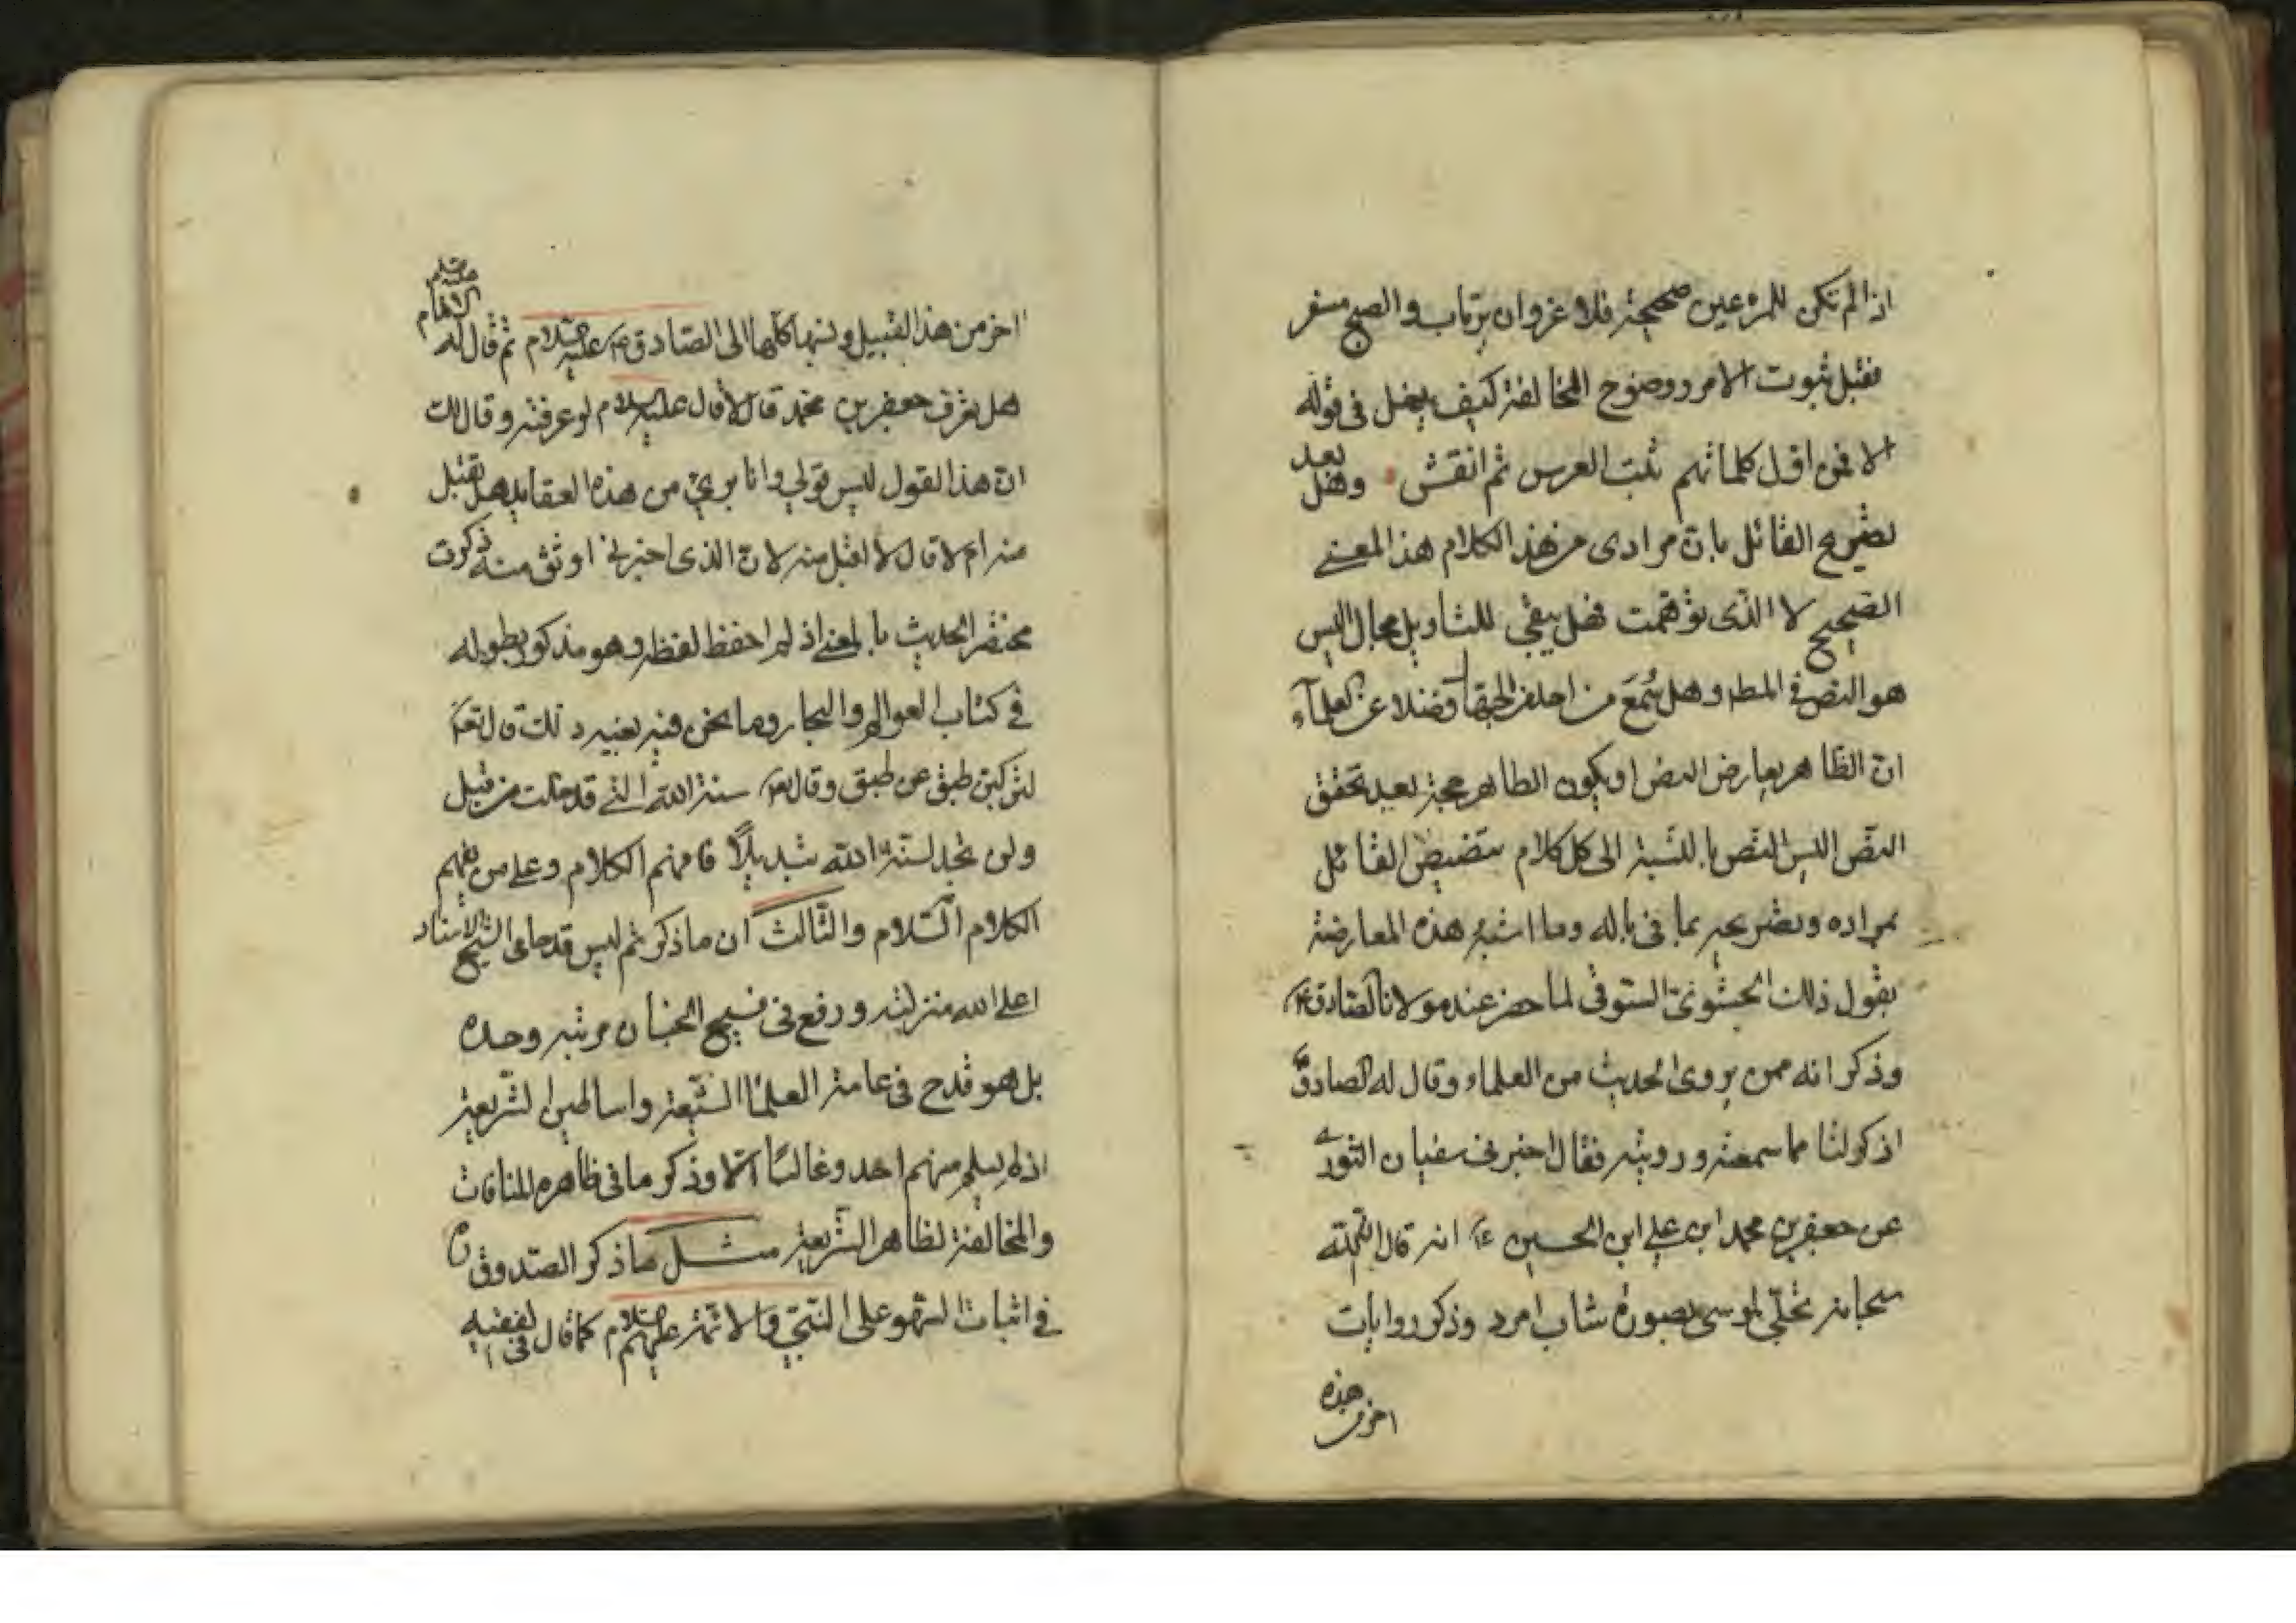 اذا لم تكن للمرء عين صحيحة فلا غرو ان يرتاب والصبح مسفر
فقبل ثبوت الامر ووضوح المخالفة كيف يغل في قوله
الا فمن اقل كلماتهم ثبت العرس ثم انقش وهل بعد
تصريح القائل بان مرادى من هذا الكلام هذا المعنى
الصحيح لا الذى توهمت فهل يبقى للتاويل مجال اليس
هو النص في المط وهل سُمعَ من احد من الحمقا فضلا عن العلمآء
ان الظاهر يعارض النص او يكون الظاهر حجة بعد تحقق
النص اليس النص بالنسبة الى كل كلام تنصيص القائل
بمراده وتصريحه بما في باله وما اشبه هذه المعارضة
بقول ذلك الحشوىّ السوفى لما حضر عند مولانا الصادق ع
وذكر انه ممن يروى الحديث من العلماء وقال له الصادق ع
اذكر لنا مما سمعته ورويته فقال اخبرنى سفيان الثورى
عن جعفر بن محمد ابن على ابن الحسين ع انه قال ان الله
سبحانه تجلّى لموسى بصورة شاب امرد وذكر روايات
اخر من هذه
اخر من هذا القبيل ونسبها كلها الى الصادق ع عليه السلام ثم قال له الامام عليه السلم
هل تعرف جعفر بن محمد قال لا قال عليه السلام لو عرفته وقال لك
ان هذا القول ليس قولي وانا برىء من هذه العقايد هل تقبل
منه ام لا قال لا اقبل منه لان الذى اخبرنى اوثق منه ذكرت
مختصر الحديث بالمعنى اذ لم احفظ لفظه وهو مذكور بطوله
في كتاب العوالم والبحار وما نحن فيه بعينه ذلك قال تعا
لتركبن طبق عن طبق وقال تعا سنة الله التي قد خلت من قبل
ولن تجد لسنة الله تبديلاً فافهم الكلام وعلى من يفهم
الكلام السّلام والثّالث ان ما ذكر ثم ليس قدحا على الشيخ الاستاد
اعلى الله منزلته ورفع في فسيح الجنان مرتبه وحده
بل هو قدح في عامة العلماء الشيعة واساطين الشريعة
اذ لم يسلم منهم احد وغالبًا الا وذكر ما في ظاهره المنافات
والمخالفة لظاهر الشريعة مثل ما ذكر الصّدوق ره
في اثبات السّهو على النّبيّ والائمّة عليهم السلام كما قال في الفقيه